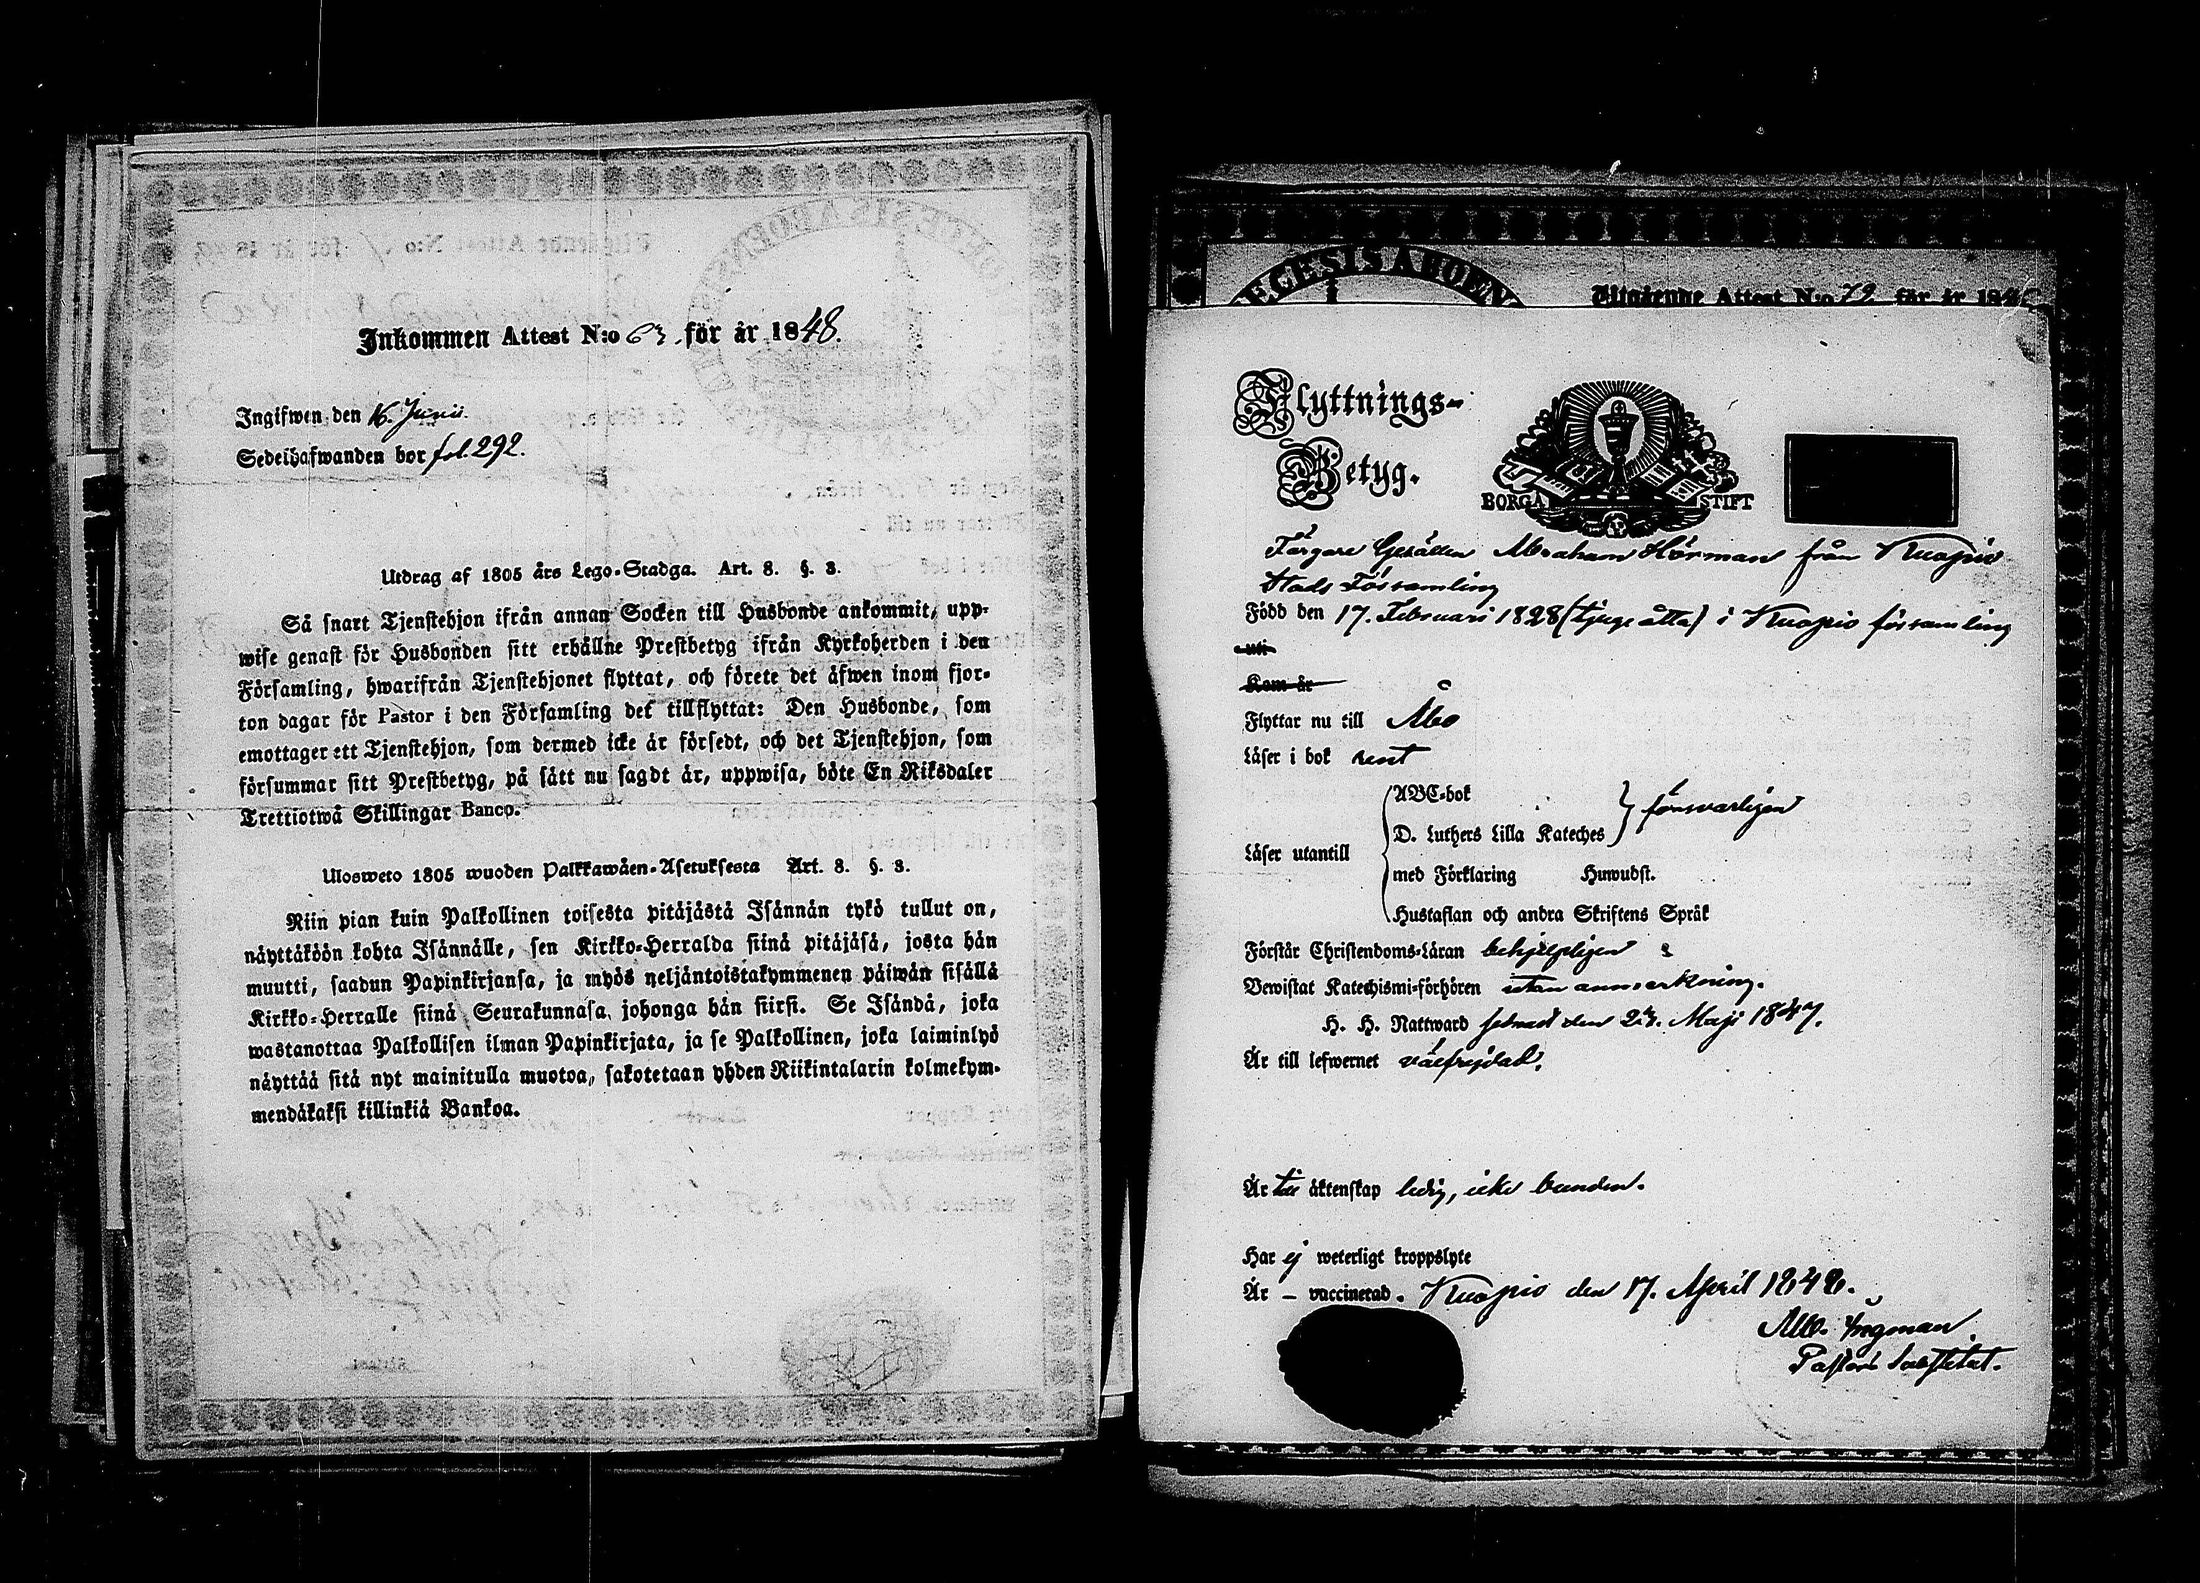 Inkommen Attest N:o 63. för år 1848.
Ingifwen den 16. Junii.
Sedelhafwanden bor fol. 292.
Utdrag af 1805 års Lego-Stadga. Art. 8. §. 3.
Så snart Tjenstehjon ifrån annan Socken till Husbonde ankommit, upp-
wise genast för Husbonden sitt erhållne Prestbetyg ifrån Kyrkoherden i den
Församling, hwarifrån Tjenstehjonet flyttat, och förete det äfwen inom fjor-
ton dagar för Pastor i den Församling det tillflyttat: Den Husbonde, som
emottager ett Tjenstehjon, som dermed icke är försedt, och det Tjenstehjon, som
försummar sitt Prestbetyg, på sätt nu sagdt är, uppwisa, böte En Riksdaler
Trettiotwå Skillingar Banco.
Ulosweto 1805 wuoden Palkkawäen-Asetuksesta Art. 8. §. 3.
Niin pian kuin Palkollinen toisesta pitäjästä Isännän tykö tullut on,
näyttäköön kohta Isännälle, sen Kirkko-Herralda siinä pitäjäsä, josta hän
muutti, saadun Papinkirjansa, ja myös neljäntoistakymmenen päiwän sisällä
Kirkko-Herralle siinä Seurakunnasa, johonga hän siirsi. Se Isändä, joka
wastanottaa Palkollisen ilman Papinkirjata, ja se Palkollinen, joka laiminlyö
näyttää sitä nyt mainitulla muotoa, sakotetaan yhden Riikintalarin kolmekym-
mendäkaksi killinkiä Bankoa.
EGESIS ABOEN
Utgående Attest N:o 79 för år 18
Flyttnings-
Betyg.
BORGÅ STIFT
Färgare Gesällen Abraham Hörman från Kuopio
Stads Församling
Född den 17. Februari 1828 (tjuge åtta) i Kuopio församling
uti
Kom år
Flyttar nu till Åbo
Läser i bok rent
Läser utantill
ABC-bok
D. Luthers Lilla Kateches } försvarligen
med Förklaring Huwudst.
Hustaflan och andra Skriftens Språk
Förstår Christendoms-Läran behjelpligen
Bewistat Katechismi-förhören utan anmärkning.
H. H. Nattward senast den 24. Maji 1847.
Är till lefwernet välfrejdad.
Är till äktenskap ledig, icke bunden.
Har ej weterligt kroppslyte
Är – vaccinerad. Kuopio den 17. April 1848.
Alb. Ingman
Pastors Substitut.